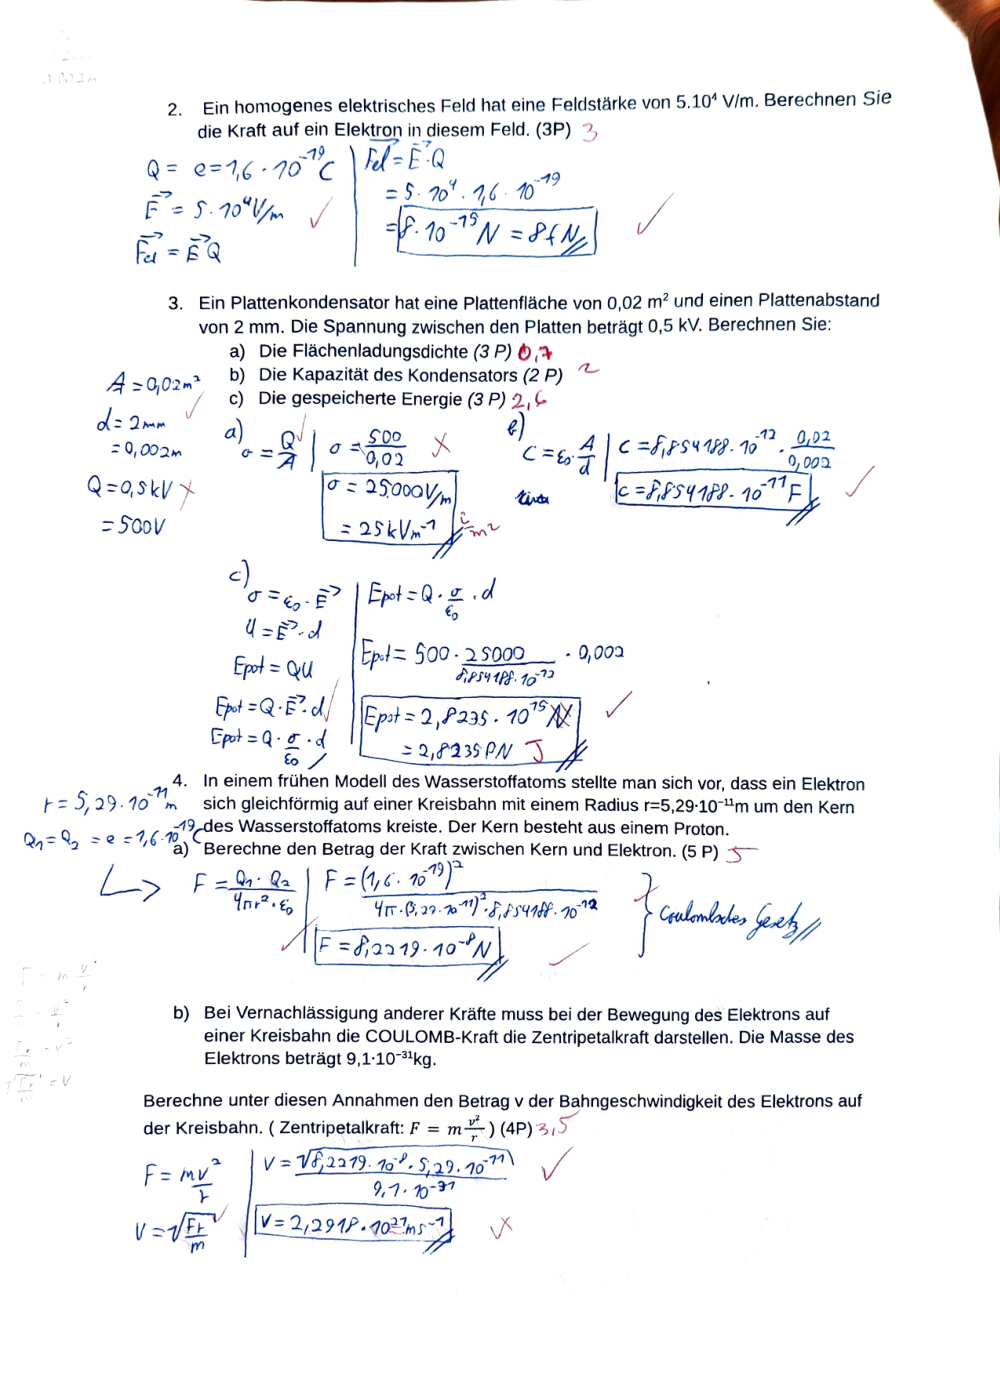 0,002m
2. Ein homogenes elektrisches Feld hat eine Feldstärke von 5.10⁴ V/m. Berechnen Sie
die Kraft auf ein Elektron in diesem Feld. (3P) 3
Q = e = 1,6 · 10⁻¹⁹ C
E⃗ = 5 · 10⁴ V/m
F⃗el = E⃗ Q
F⃗el = E⃗ · Q
= 5 · 10⁴ · 1,6 · 10⁻¹⁹
= 8 · 10⁻¹⁵ N = 8 f N
3. Ein Plattenkondensator hat eine Plattenfläche von 0,02 m² und einen Plattenabstand
von 2 mm. Die Spannung zwischen den Platten beträgt 0,5 kV. Berechnen Sie:
a) Die Flächenladungsdichte (3 P) 0,7
b) Die Kapazität des Kondensators (2 P) 2
c) Die gespeicherte Energie (3 P) 2,6
A = 0,02 m²
d = 2mm
= 0,002m
Q = 0,5 kV
= 500V
a) σ = Q/A | σ = 500/0,02
σ = 25000 V/m
= 25 kVm⁻¹ C/m²
b) C = ε₀ · A/d | C = 8,854188 · 10⁻¹² · 0,02/0,002
C = 8,854188 · 10⁻¹¹ F
c) σ = ε₀ · E⃗
U = E⃗ · d
Epot = QU
Epot = Q · E⃗ · d
Epot = Q · σ/ε₀ · d
Epot = Q · σ/ε₀ · d
Epot = 500 · 25000/8,854188 · 10⁻¹² · 0,002
Epot = 2,8235 · 10¹⁵ N
= 2,8235 PN J
4. In einem frühen Modell des Wasserstoffatoms stellte man sich vor, dass ein Elektron
sich gleichförmig auf einer Kreisbahn mit einem Radius r=5,29·10⁻¹¹m um den Kern
des Wasserstoffatoms kreiste. Der Kern besteht aus einem Proton.
a) Berechne den Betrag der Kraft zwischen Kern und Elektron. (5 P) 5
r = 5,29 · 10⁻¹¹ m
Q₁ = Q₂ = e = 1,6 · 10⁻¹⁹ C
F = Q₁ · Q₂/4πr² · ε₀ | F = (1,6 · 10⁻¹⁹)²/4π · (5,29 · 10⁻¹¹)² · 8,854188 · 10⁻¹²
F = 8,2219 · 10⁻⁸ N
Coulombsches Gesetz
F = m v²/r
Fr/m = v²
√Fr/m = v
b) Bei Vernachlässigung anderer Kräfte muss bei der Bewegung des Elektrons auf
einer Kreisbahn die COULOMB-Kraft die Zentripetalkraft darstellen. Die Masse des
Elektrons beträgt 9,1·10⁻³¹kg.
Berechne unter diesen Annahmen den Betrag v der Bahngeschwindigkeit des Elektrons auf
der Kreisbahn. ( Zentripetalkraft: F = m v²/r ) (4P) 3,5
F = mv²/r
v = √Fr/m
v = √8,2219 · 10⁻⁸ · 5,29 · 10⁻¹¹/9,1 · 10⁻³¹
v = 2,2918 · 10²⁷ ms⁻¹